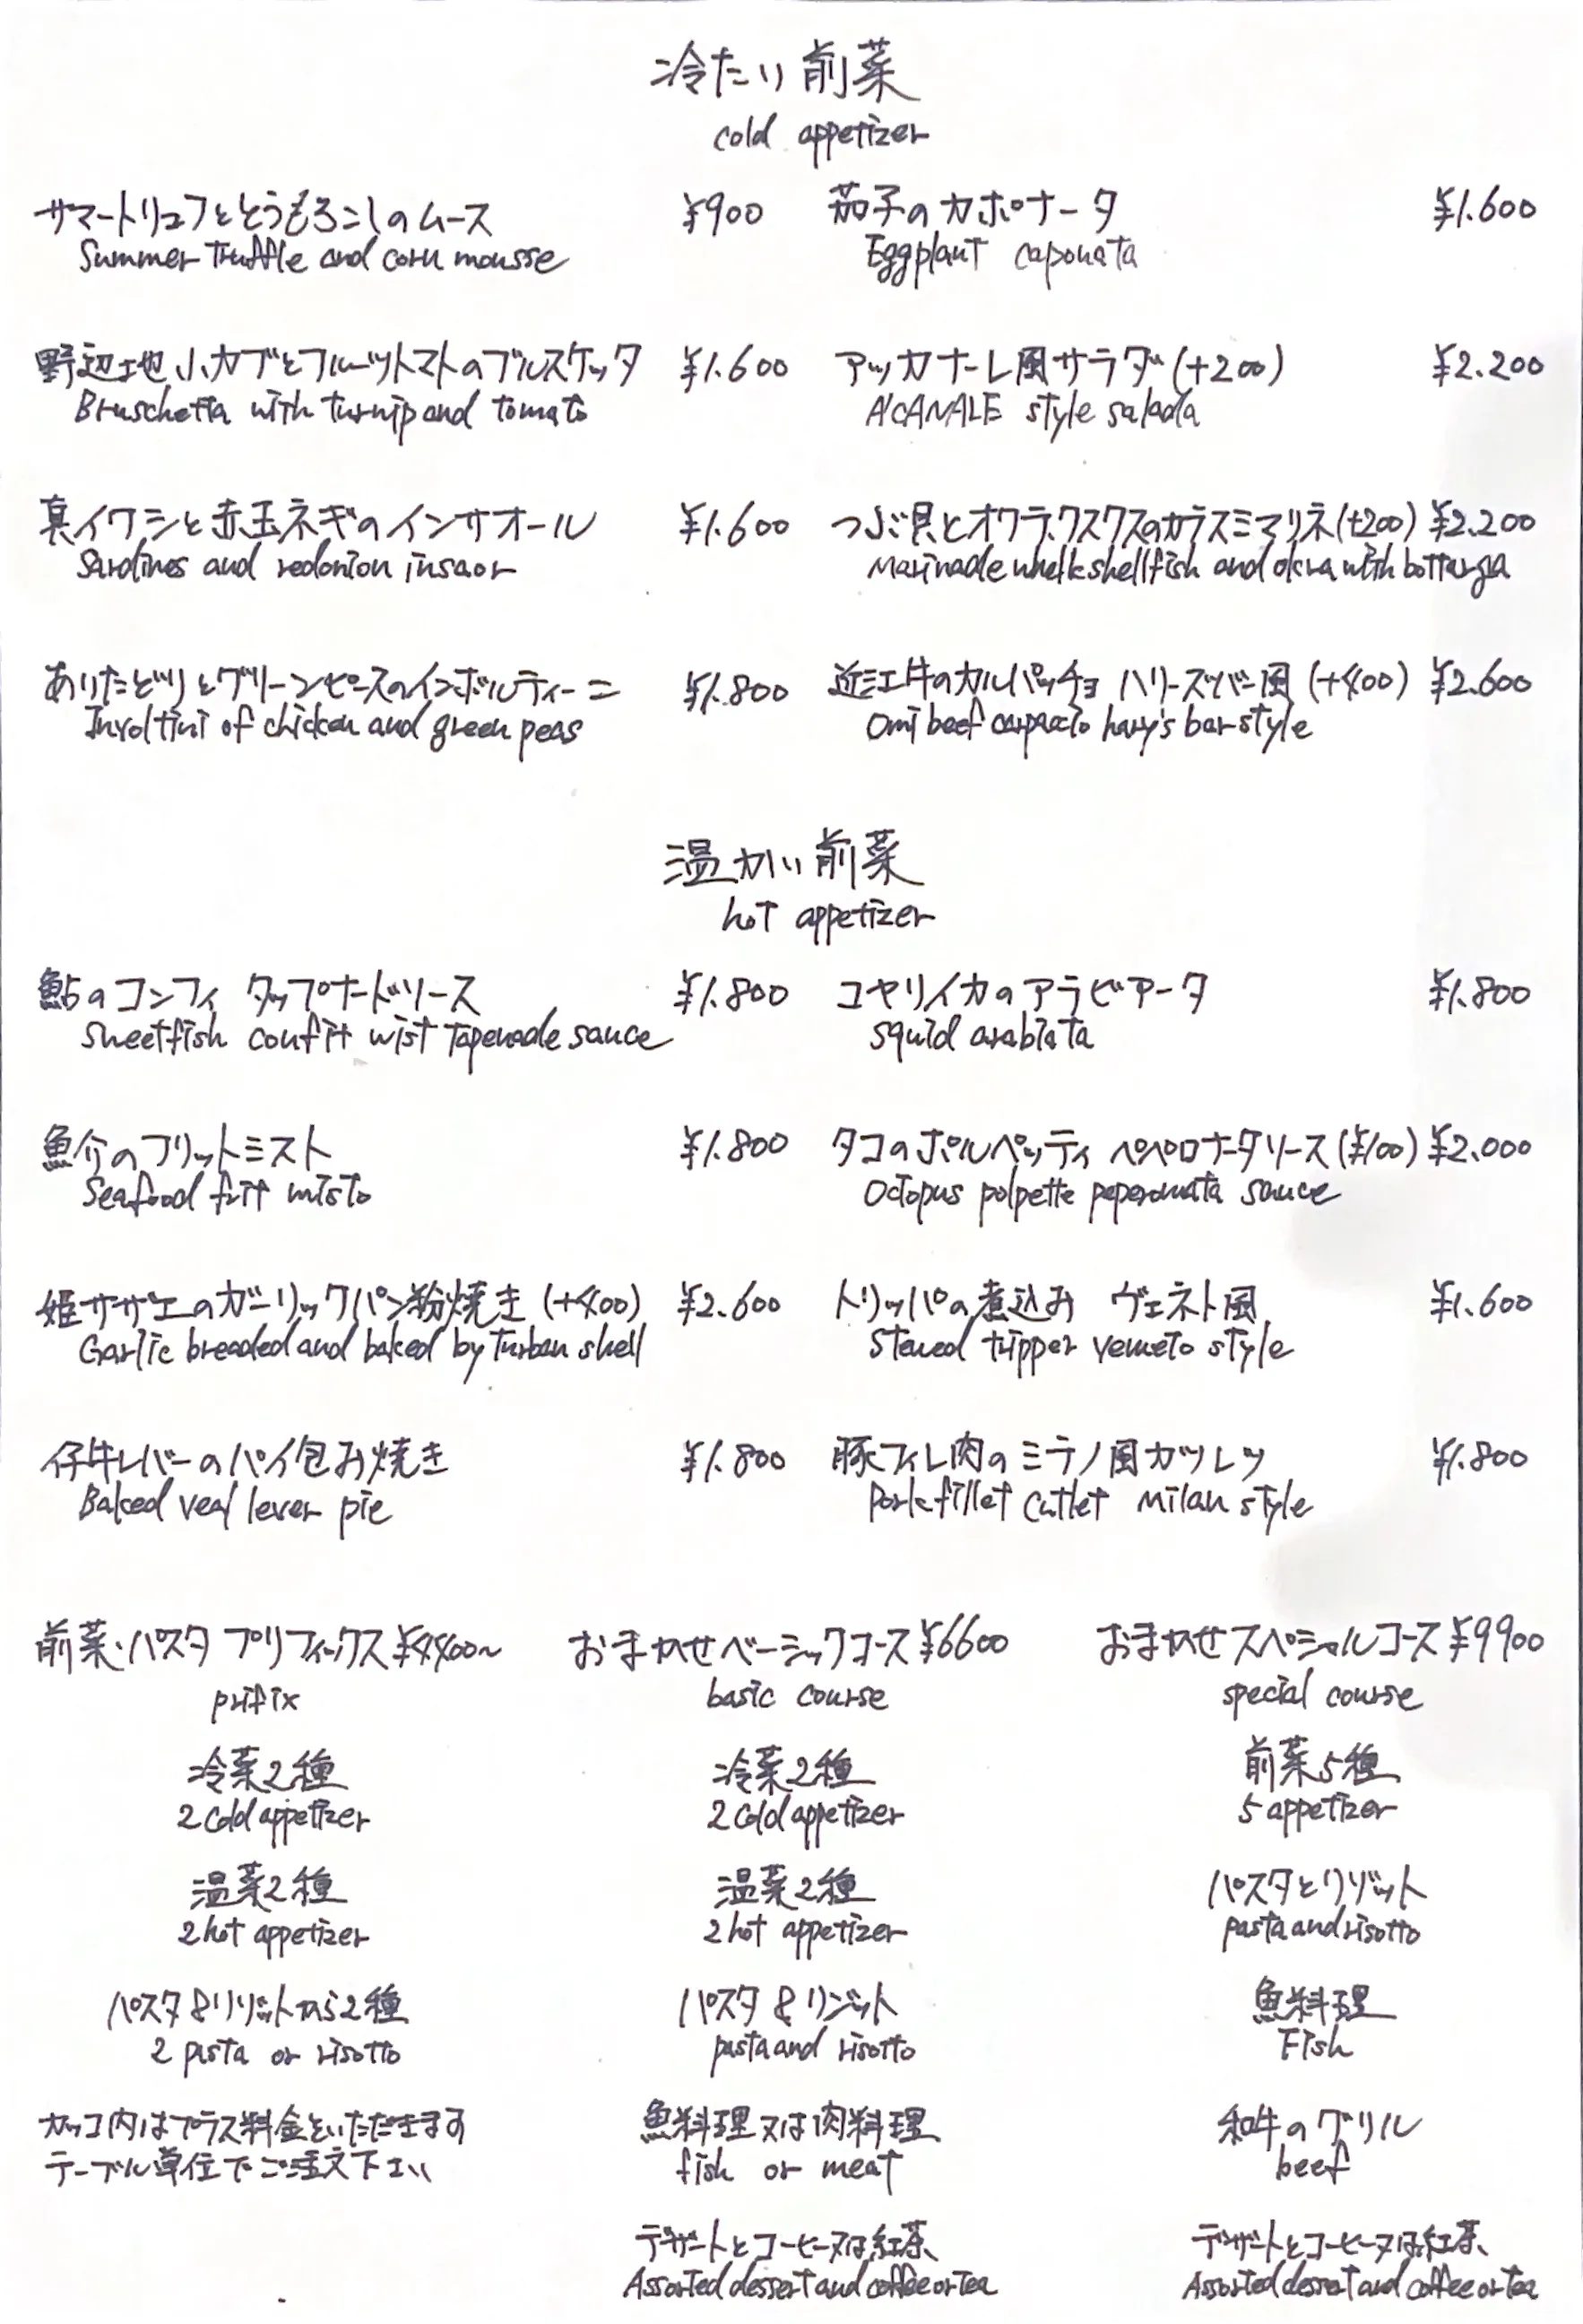 冷たい前菜
cold appetizer
サマートリュフととうもろこしのムース ¥900
Summer Truffle and corn mousse
野辺地小カブとフルーツトマトのブルスケッタ ¥1.600
Bruschetta with turnip and tomato
真イワシと赤玉ネギのインサオール ¥1.600
Sardines and redonion insaor
ありたどりとグリーンピースのインボルティーニ ¥1.800
Involtini of chicken and green peas
茄子のカポナータ ¥1.600
Eggplant caponata
アッカナーレ風サラダ(+200) ¥2.200
A'CANALE style salada
つぶ貝とオクラ、クスクスのカラスミマリネ(+200) ¥2.200
Marinade whelk shellfish and okra with bottarga
近江牛のカルパッチョ ハリーズバー風 (+400) ¥2.600
Omi beef carpaccio hary's bar style
温かい前菜
hot appetizer
鮎のコンフィ タップナードソース ¥1.800
Sweetfish confit wist Tapenade sauce
魚介のフリットミスト ¥1.800
Seafood frit misto
姫サザエのガーリックパン粉焼き (+400) ¥2.600
Garlic breaded and baked by Turban shell
仔牛レバーのパイ包み焼き ¥1.800
Baked veal lever pie
コヤリイカのアラビアータ ¥1.800
squid arabiata
タコのポルペッティ ペペロナータソース (¥100) ¥2.000
Octopus polpette peperonata sauce
トリッパの煮込み ヴェネト風 ¥1.600
Stewed tripper veneto style
豚フィレ肉のミラノ風カツレツ ¥1.800
Pork fillet cutlet milan style
前菜・パスタ プリフィックス ¥4400~
prifix
冷菜2種
2 cold appetizer
温菜2種
2 hot appetizer
パスタ&リゾットから2種
2 pasta or risotto
カッコ内はプラス料金をいただきます
テーブル単位でご注文下さい
おまかせベーシックコース ¥6600
basic course
冷菜2種
2 cold appetizer
温菜2種
2 hot appetizer
パスタ&リゾット
pasta and risotto
魚料理又は肉料理
fish or meat
デザートとコーヒー又は紅茶
Assorted dessert and coffee or tea
おまかせスペシャルコース ¥9900
special course
前菜5種
5 appetizer
パスタとリゾット
pasta and risotto
魚料理
Fish
和牛のグリル
beef
デザートとコーヒー又は紅茶
Assorted dessert and coffee or tea